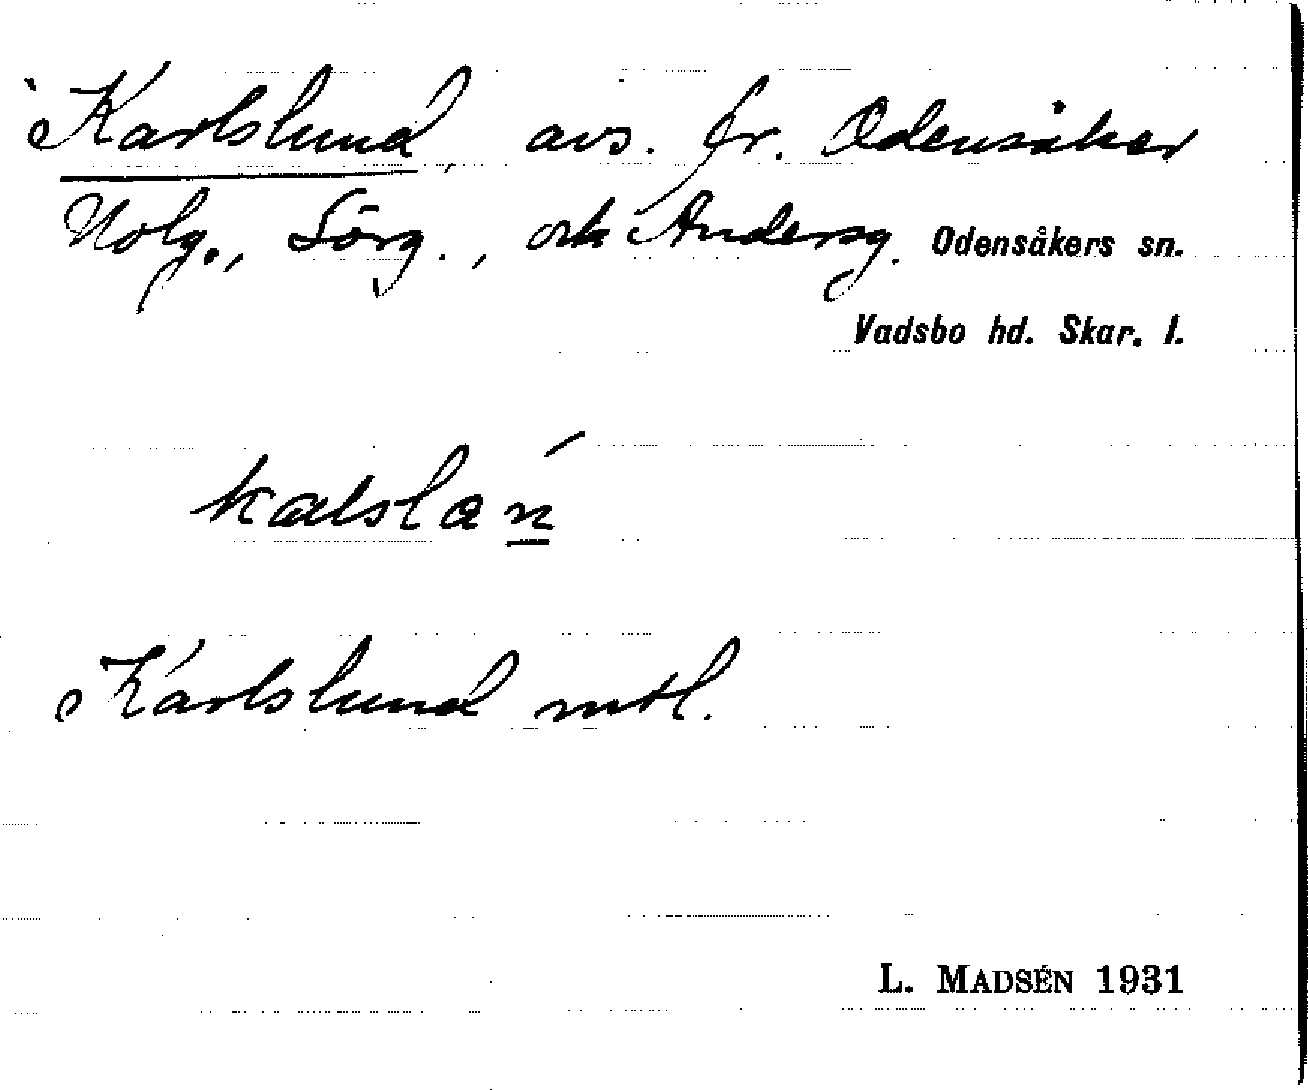 Karlslund, avs. fr. Odensåker
Nolg., Sörg., och Andersg. Odensåkers sn.
Vadsbo hd. Skar. l.
Karlslund mtl.
L. MADSÉN 1931